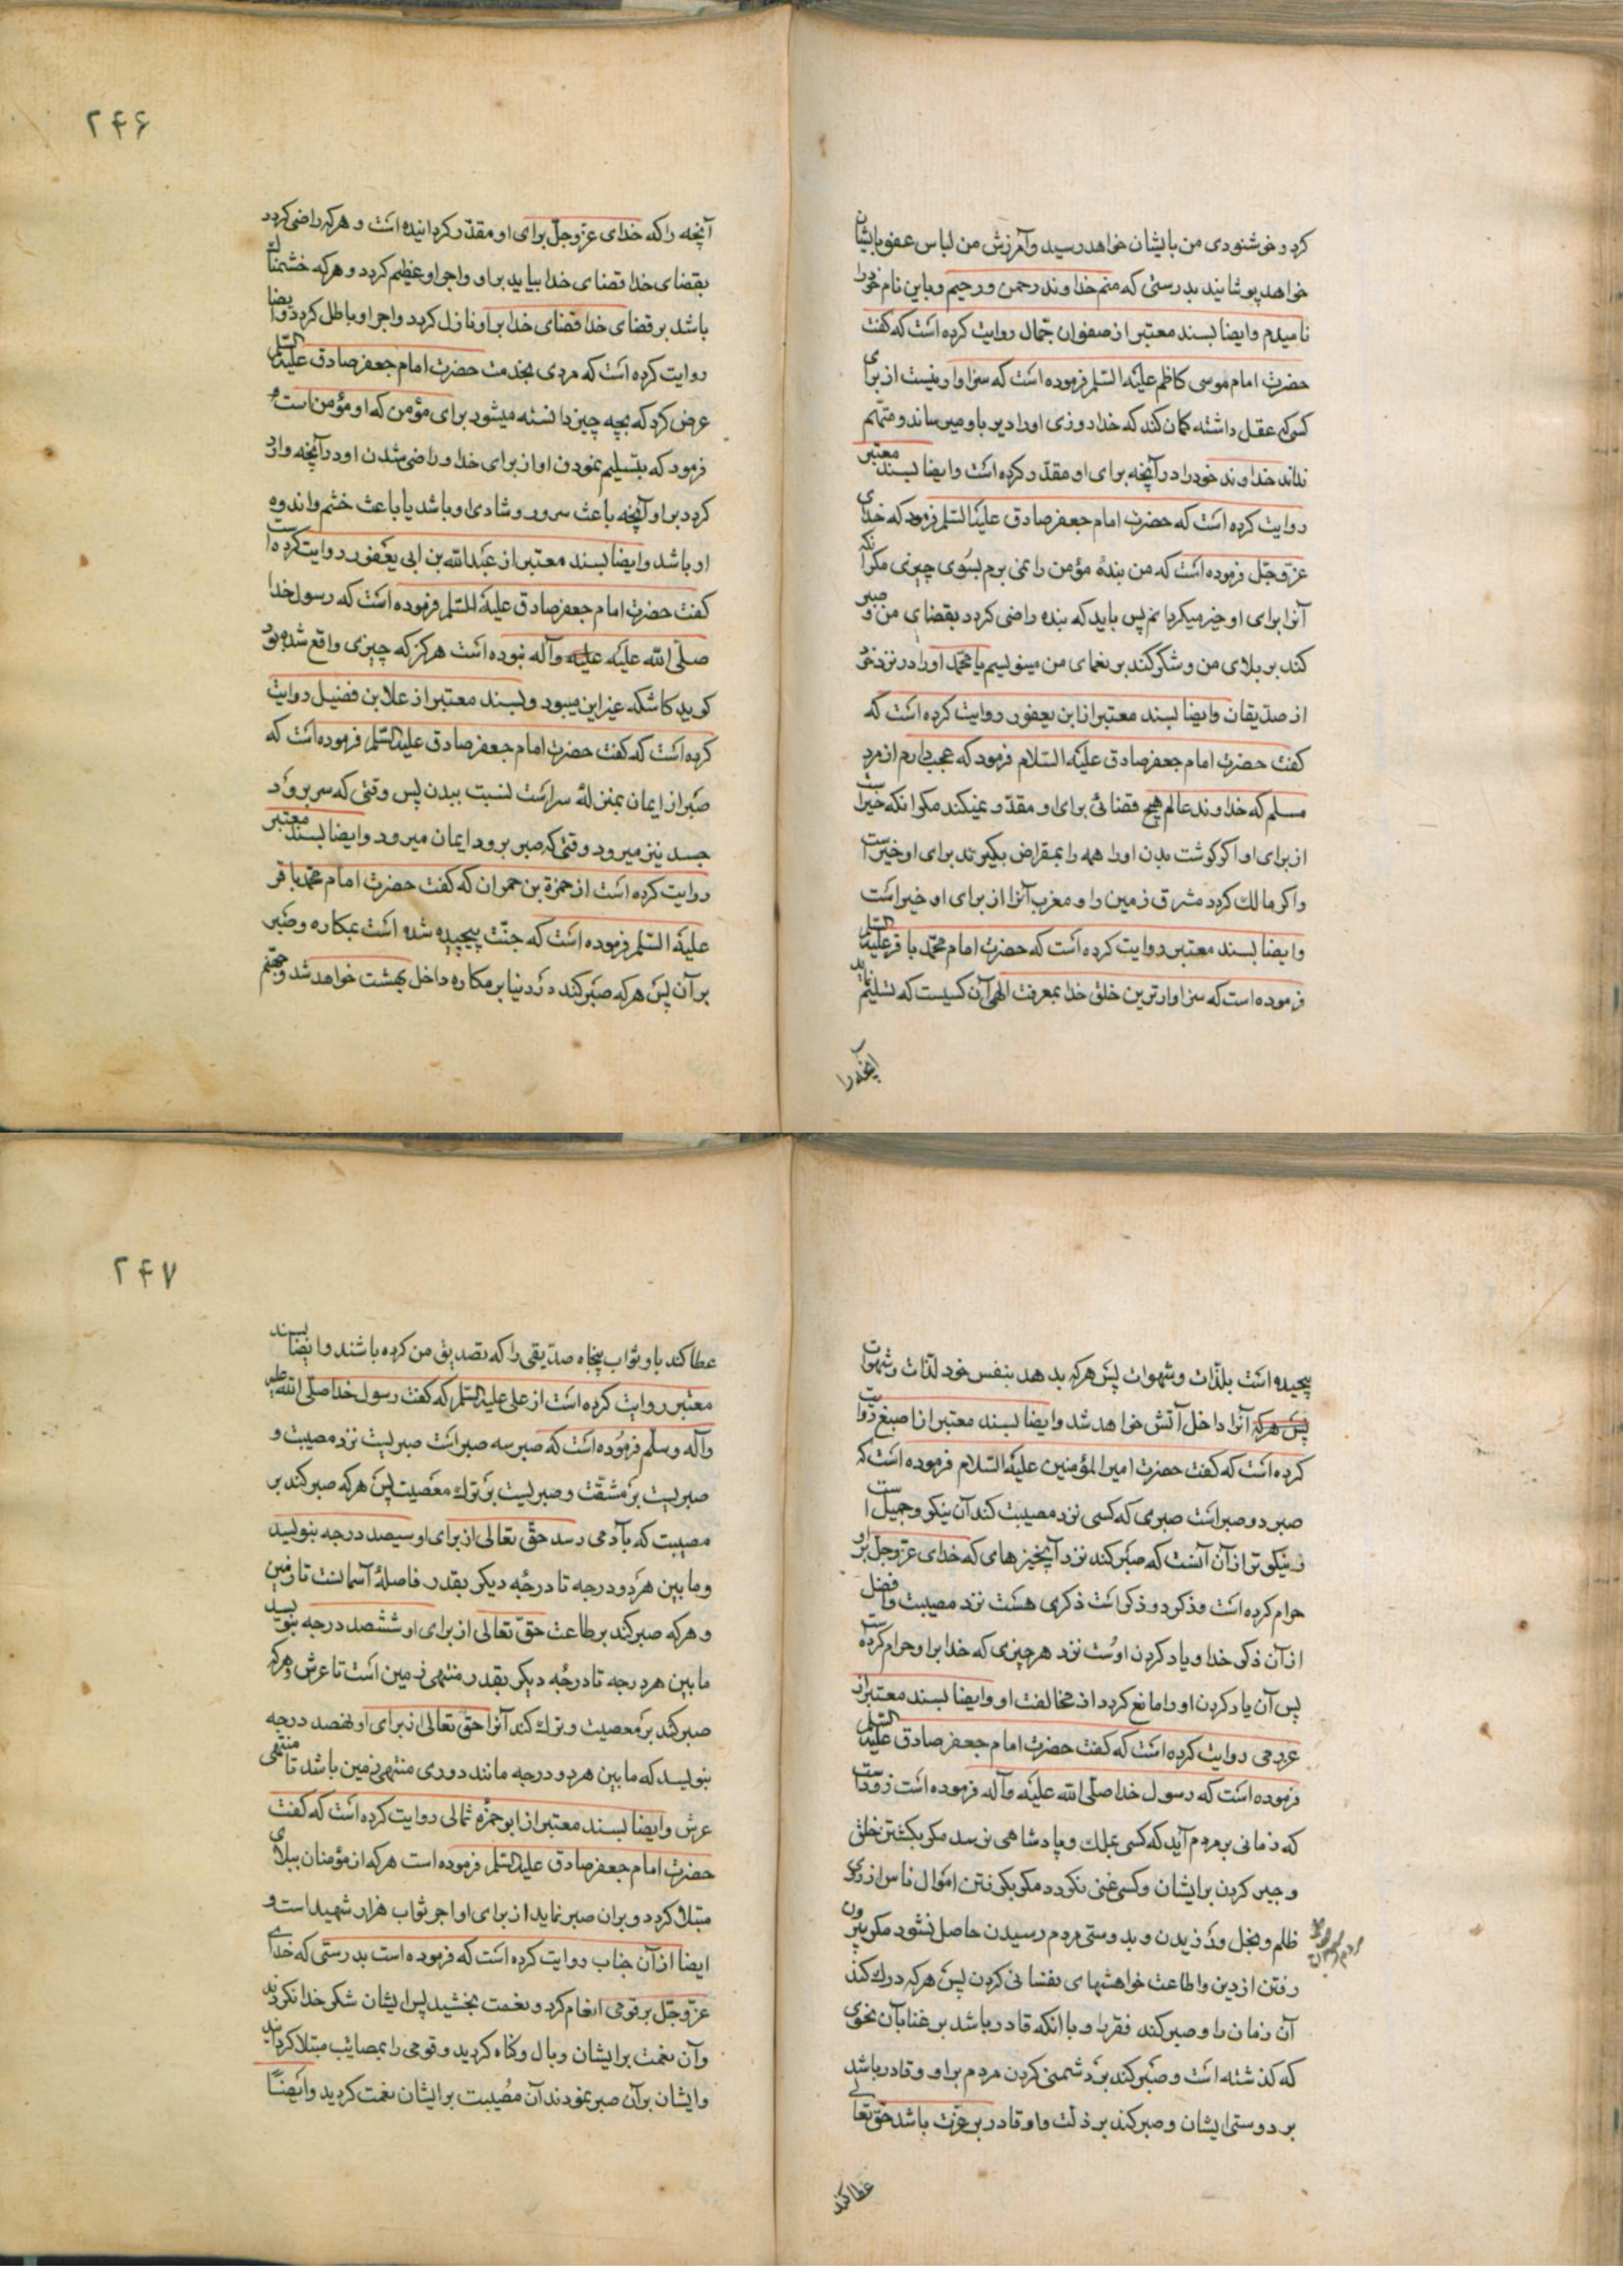 کرد و خوشنودی من بایشان خواهد رسید و آمرزش من لباس عفو بایشان
خواهد پوشانید بدرستی که منم خداوند رحمن و رحیم و باین نام خود را
نامیدم و ایضا بسند معتبر از صفوان جمال روایت کرده است که گفت
حضرت امام موسی کاظم علیه السلم فرموده است که سزاوار نیست از برای
کسی که عقل داشته کمان کند که خدا روزی او را دیر باو میرساند و متهم
نداند خداوند خود را در آنچه برای او مقدّر کرده است و ایضا بسند معتبر
روایت کرده است که حضرت امام جعفر صادق علیه السلم فرمود که خدای
عزّ و جلّ فرموده است که من بندهٔ مؤمن را نمی برم بسوی چیزی مکر آنکه
آنرا برای او خیر میکردانم پس باید که بنده راضی کردد بقضای من و صبر
کند بر بلای من و شکر کند بر نعمای من مینویسم یا محمد او را در نزد خود
از صدیقان و ایضا بسند معتبر از ابن یعفور روایت کرده است که
کفت حضرت امام جعفر صادق علیه السلام فرمود که عجب دارم از مرد
مسلم که خداوند عالم هیچ قضائی برای او مقدّر نمیکند مکر انکه خیر است
از برای او اکر کوشت بدن او را همه را بمقراض بکیرند برای او خیر است
و اکر مالک کردد مشرق زمین را و مغرب آنرا از برای او خیر است
و ایضا بسند معتبر روایت کرده است که حضرت امام محمّد باقر علیه السلم
فرموده است که سزاوارترین خلق خدا بمعرفت الهی آن کسیست که تسلیم نماید
آنچه را
۲۴۶
آنچه را که خدای عزّ و جلّ برای او مقدّر کردانیده است و هر که راضی کردد
بقضای خدا قضای خدا بیاید بر او و اجر او عظیم کردد و هر که خشمناک
باشد بر قضای خدا قضای خدا بر او نازل کردد و اجر او باطل کردد و ایضا
روایت کرده است که مردی بخدمت حضرت امام جعفر صادق علیه السلم
عرض کرد که بچه چیز دانسته میشود برای مؤمن که او مؤمن است
فرمود که بتسلیم نمودن او از برای خدا و راضی شدن او در آنچه وارد
کردد بر او آنچه باعث سرور و شادی او باشد یا باعث خشم و اندوه
او باشد و ایضا بسند معتبر از عبدالله بن ابی یعفور روایت کرده است
کفت حضرت امام جعفر صادق علیه السلم فرموده است که رسول خدا
صلّی الله علیه علیه و آله نبوده است هرکز که چیزی واقع شده بود
کوید کاشکه غیر این میبود و بسند معتبر از علا بن فضیل روایت
کرده است که کفت حضرت امام جعفر صادق علیه السلم فرموده است که
صبر از ایمان بمنزلهٔ سر است نسبت ببدن پس وقتی که سر برود
جسد نیز میرود و وقتی که صبر برود ایمان میرود و ایضا بسند معتبر
روایت کرده است از حمزة بن حمران که کفت حضرت امام محمّد باقر
علیه السلم فرموده است که جنّت پیچیده شده است بمکاره و صبر
بر آن پس هر که صبر کند در دنیا بر مکاره داخل بهشت خواهد شد و جهنم
پیچیده است بلذّات و شهوات پس هر که بدهد بنفس خود لذّات و شهوات
پس هر که آنرا داخل آتش خواهد شد و ایضا بسند معتبر از اصبغ روایت
کرده است که کفت حضرت امیر المؤمنین علیه السلام فرموده است که
صبر دو صبر است صبری که کسی نزد مصیبت کند آن نیکو و جمیل است
و نیکوتر از آن آنست که صبر کند نزد آنچیزهای که خدای عزّ و جلّ بر او
حرام کرده است و ذکر دو ذکر است ذکری هست نزد مصیبت و افضل
از آن ذکر خدا و یاد کردن اوست نزد هر چیزی که خدا بر او حرام کرده است
پس آن یاد کردن او را مانع کردد از مخالفت او و ایضا بسند معتبر از
عرزمی روایت کرده است که کفت حضرت امام جعفر صادق علیه السلم
فرموده است که رسول خدا صلّی الله علیه و آله فرموده است زود است
که زمانی بر مردم آید که کسی بملک و پادشاهی نرسد مکر بکشتن خلق
و جبر کردن بر ایشان و کسی غنی نکردد مکر بکرفتن اموال ناس از روی
ظلم و بخل ورزیدن و بدوستی مردم رسیدن حاصل نشود مکر بیرون
رفتن از دین و اطاعت خواهشهای نفسانی کردن پس هر که درک کند
آن زمان را و صبر کند فقر را و با انکه قادر باشد بر غنا بآن نحوی
که کذشته است و صبر کند بر دشمنی کردن مردم بر او و قادر باشد
بر دوستی ایشان و صبر کند بر ذلت و او قادر بر عزت باشد حق تعالی
عطا کند
۲۴۷
عطا کند باو ثواب پنجاه صدّیقی را که تصدیق من کرده باشند و ایضا بسند
معتبر روایت کرده است از علی علیه السلم که کفت رسول خدا صلّی الله علیه
و آله و سلّم فرموده است که صبر سه صبر است صبریست نزد مصیبت و
صبریست بر مشقّت و صبریست بر ترک معصیت پس هر که صبر کند بر
مصیبت که بآدمی رسد حقّ تعالی از برای او سیصد درجه بنویسد
و ما بین هر دو درجه تا درجهٔ دیکر بقدر فاصلهٔ آسمانست تا زمین
و هر که صبر کند بر طاعت حقّ تعالی از برای او ششصد درجه بنویسد
ما بین هر درجه تا درجهٔ دیکر بقدر منتهی زمین است تا عرش و هر که
صبر کند بر معصیت و ترک کند آنرا حقّ تعالی از برای او نهصد درجه
بنویسد که ما بین هر دو درجه مانند دوری منتهی زمین باشد تا منتهی
عرش و ایضا بسند معتبر از ابو حمزه ثمالی روایت کرده است که کفت
حضرت امام جعفر صادق علیه السلم فرموده است هر که از مؤمنان ببلای
مبتلا کردد و بر ان صبر نماید از برای او اجر ثواب هزار شهید است و
ایضا از آن جناب روایت کرده است که فرموده است بدرستی که خدای
عزّ و جلّ بر قومی انعام کرد و نعمت بخشید پس ایشان شکر خدا نکردند
و آن نعمت بر ایشان وبال و کناه کردید و قومی را بمصائب مبتلا کردانید
و ایشان بر آن صبر نمودند آن مصیبت بر ایشان نعمت کردید و ایضًا